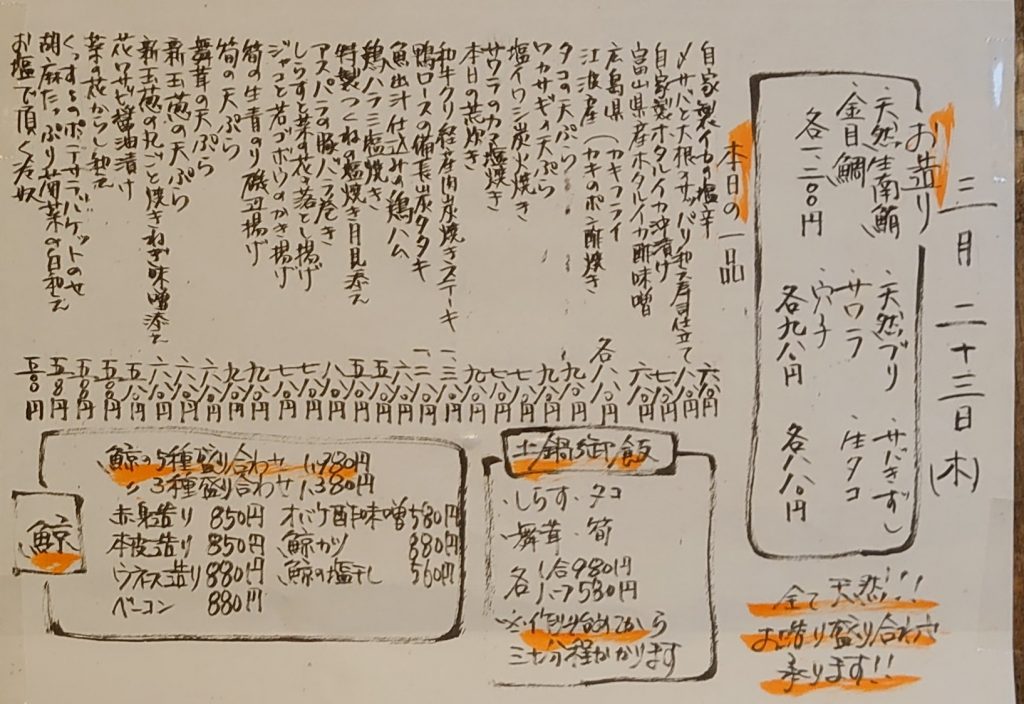 三月二十三日(木)
お造り
・天然生南鮪
・金目鯛
各一、二〇〇円
・天然ブリ
・サワラ
・穴子
各九八〇円
・サバきずし
・生タコ
各八八〇円
全て天然!!!
お造り盛り合わせ
承ります!!
本日の一品
自家製イカの塩辛 六八〇円
〆サバと大根のサッパリ和え寿司仕立て 八八〇円
自家製ホタルイカ沖漬け 七八〇円
富山県産ホタルイカ酢味噌 六八〇円
広島県江波産(カキフライ カキのポン酢焼き 各八八〇円
タコの天ぷら 九八〇円
ワカサギの天ぷら 九八〇円
塩イワシ炭火焼き 七八〇円
サワラのカマ塩焼き
本日の荒炊き
和牛クリ経産肉炭焼きステーキ
鴨ロースの備長炭タタキ
魚出汁仕込みの鶏ハム
鶏ハラミ塩焼き
特製つくねの塩焼き月見添え
アスパラの豚バラ巻き
しらすと菜の花の落とし揚げ
ジャコと若ゴボウのかき揚げ
筍の生青のり磯辺揚げ
筍の天ぷら
舞茸の天ぷら
新玉葱の天ぷら
新玉葱の丸ごと焼きねぎ味噌添え
花ワサビ醤油漬け
菜の花からし和え
くんすものポテサラバゲットのせ
胡麻たっぷり菊菜の白和え
お塩で頂く冷奴 五八〇円
土鍋御飯
・しらす・タコ
・舞茸・筍
各 1合980円
各 ハーフ580円
・※作り始めてから
三十分程かかります
鯨
鯨の5種盛り合わせ 1,980円
〃 3種盛り合わせ 1,380円
赤身造り 850円 オバケ酢味噌 580円
本皮造り 850円 鯨カツ 880円
ウネス造り 880円 鯨の塩干し 560円
ベーコン 880円